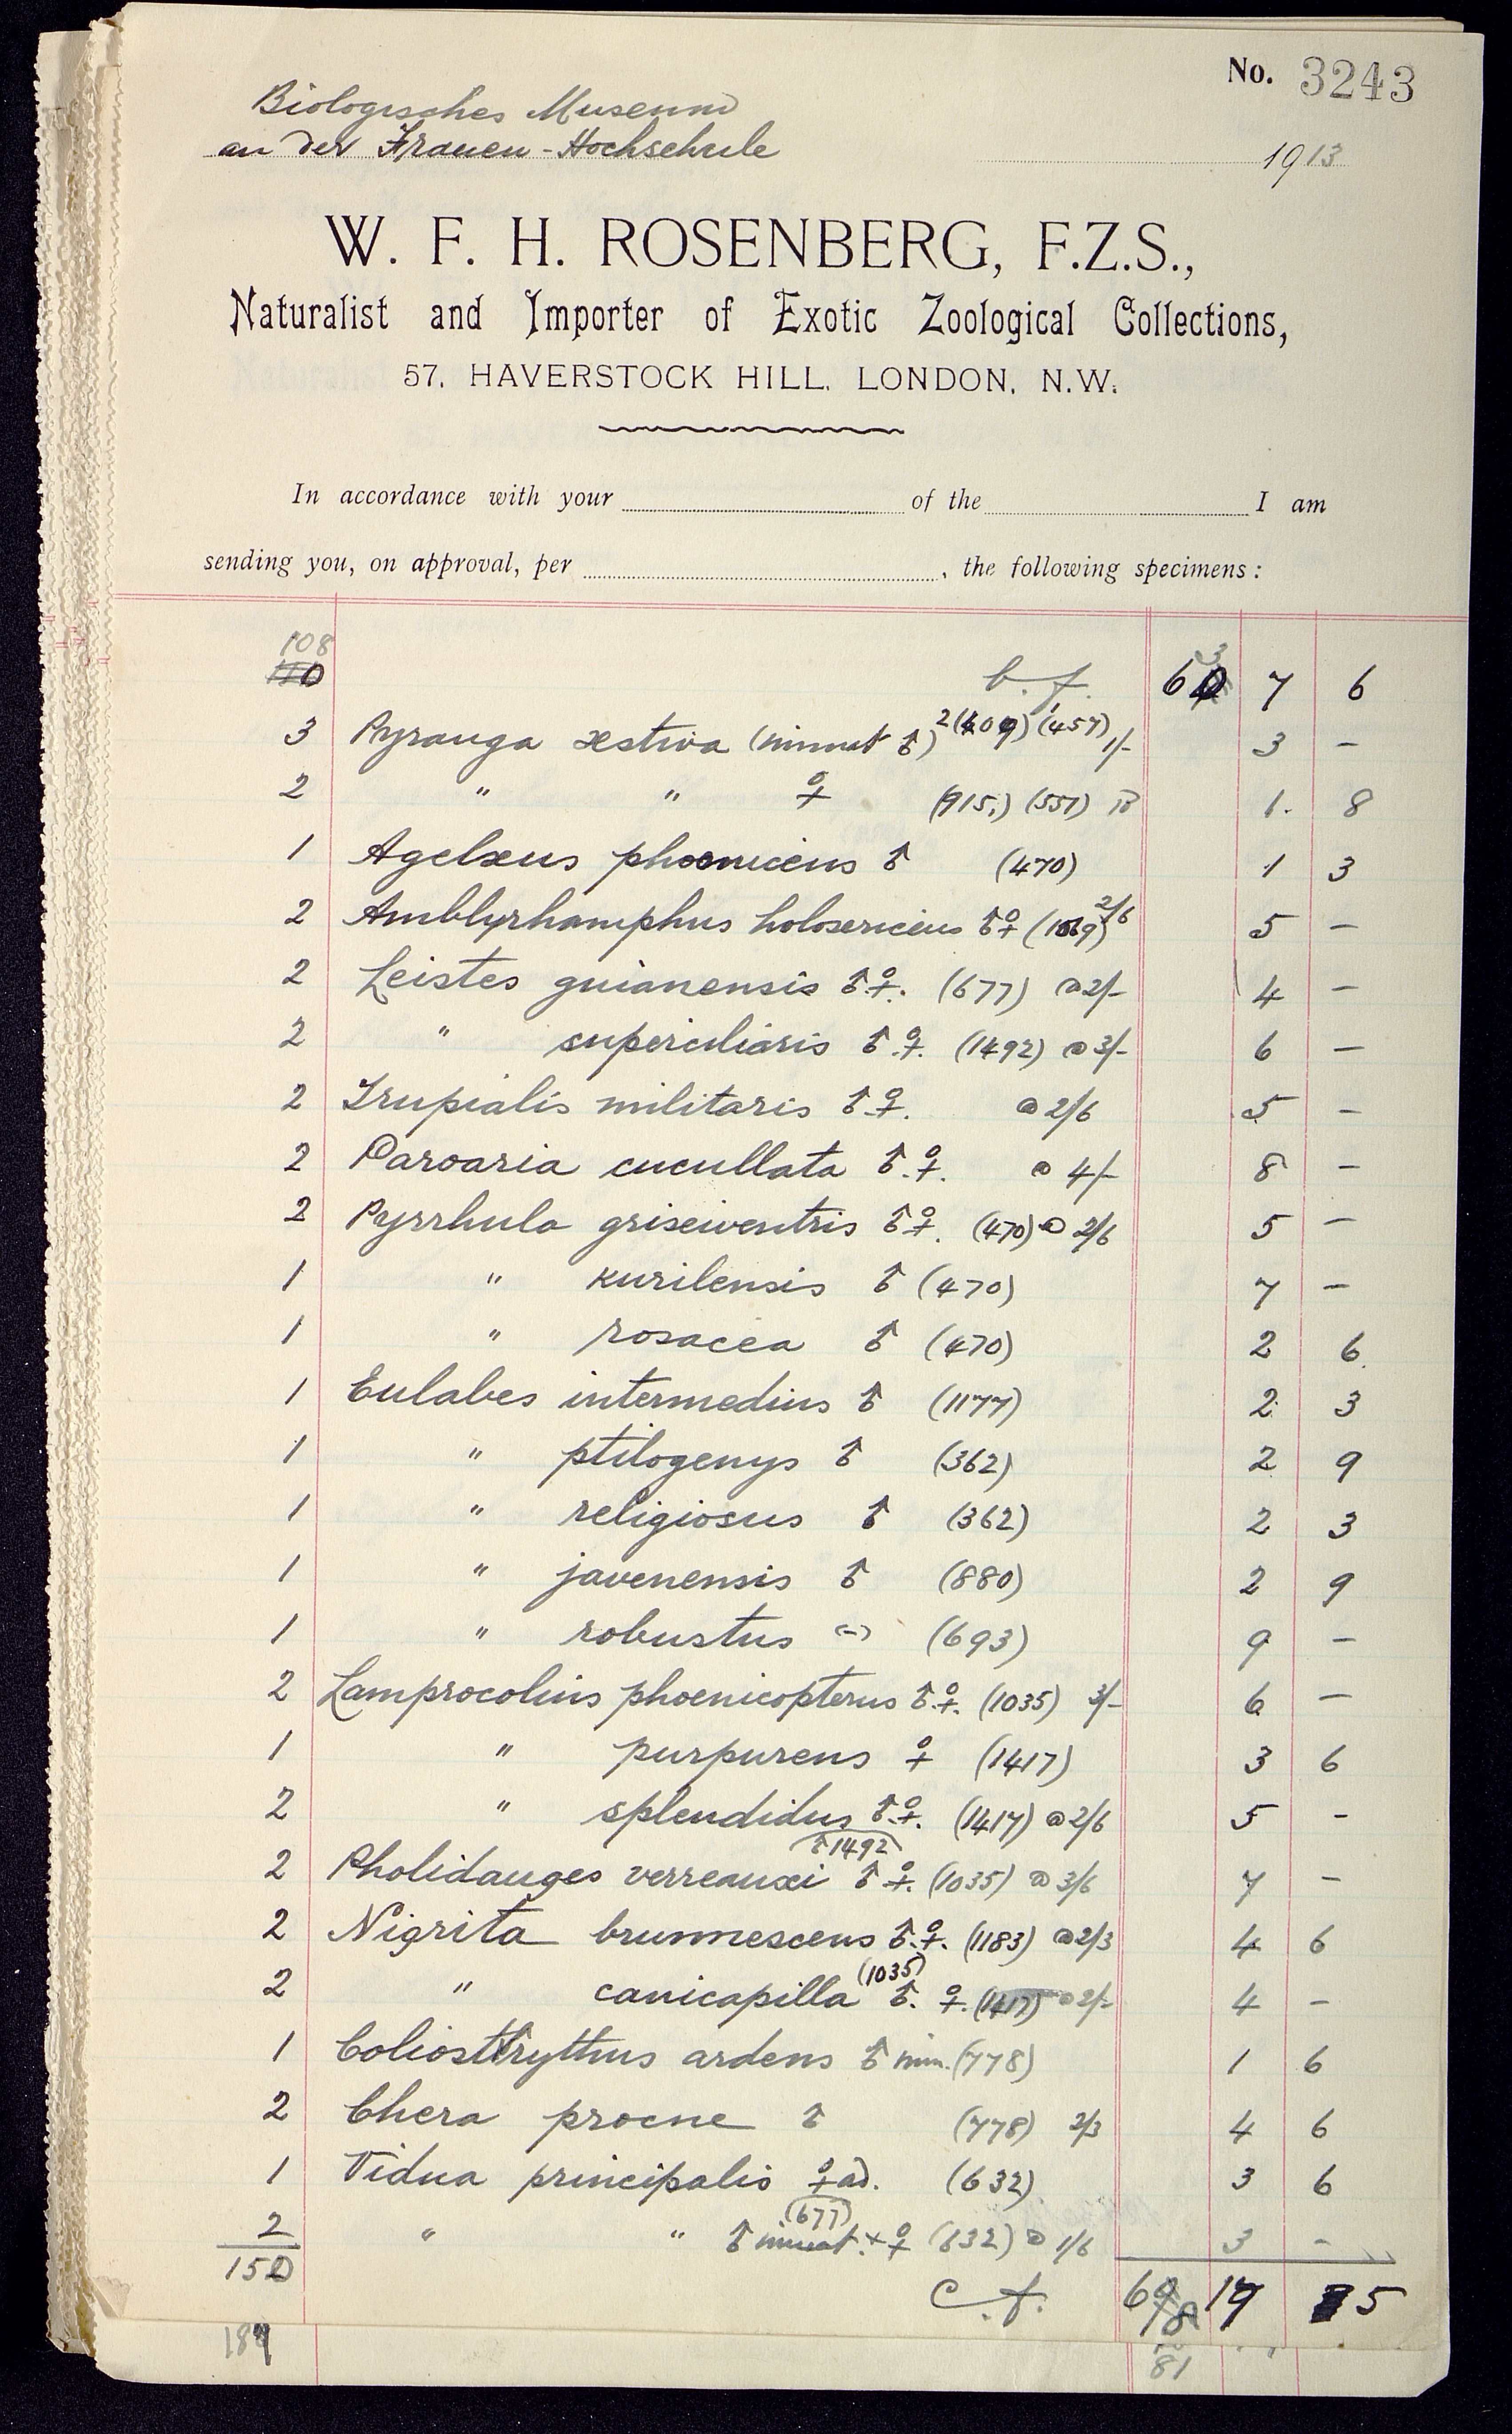 No. 3243
Biologisches Museum
an der Frauen-Hochschule
1913
W. F. H. ROSENBERG, F.Z.S.,
Naturalist and Importer of Exotic Zoological Collections,
57, HAVERSTOCK HILL, LONDON, N.W.
In accordance with your of the I am
sending you, on approval, per , the following specimens:
108
110 b.f. 63 7 6
3 Pyranga æstiva (immat ♂) 2(609) (457) 1/- 3 -
2 " " ♀ (915,) (551) 1. 8
1 Agelæus phoeniceus ♂ (470) 1 3
2 Amblyrhamphus holosericeus ♂♀ (1069) 2/6 5 -
2 Leistes guianensis ♂♀. (677) @2/- 4 -
2 " superciliaris ♂♀. (1492) @3/- 6 -
2 Trupialis militaris ♂♀. @2/6 5 -
2 Paroaria cucullata ♂.♀. @ 4/- 8 -
2 Pyrrhula griseiventris ♂♀. (470) @ 2/6 5 -
1 " kurilensis ♂ (470) 7 -
1 " rosacea ♂ (470) 2 6
1 Eulabes intermedius ♂ (1177) 2 3
1 " ptilogenys ♂ (362) 2 9
1 " religiosus ♂ (362) 2 3
1 " javenensis ♂ (880) 2 9
1 " robustus (-) (693) 9 -
2 Lamprocolius phoenicopterus ♂.♀. (1035) 3/- 6 -
1 " purpureus ♀ (1417) 3 6
2 " splendidus ♂.♀. (1417) @2/6 5 -
♂1492
2 Pholidauges verreauxi ♂♀. (1035) @ 3/6 7 -
2 Nigrita brunnescens ♂.♀. (1183) @2/3 4 6
(1035)
2 " canicapilla ♂. ♀. (1417) @2/- 4 -
1 Coliostrythus ardens ♂ imm. (778) 1 6
2 Chera procne ♂ (778) 2/3 4 6
1 Vidua principalis ♀ad. (632) 3 6
(677)
2 " " ♂ immat. + ♀ (632) @ 1/6 3 -
150 c.f. 68 17 5
189
81